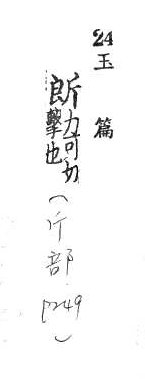 24 玉篇
力可切擊也(斤部P249)